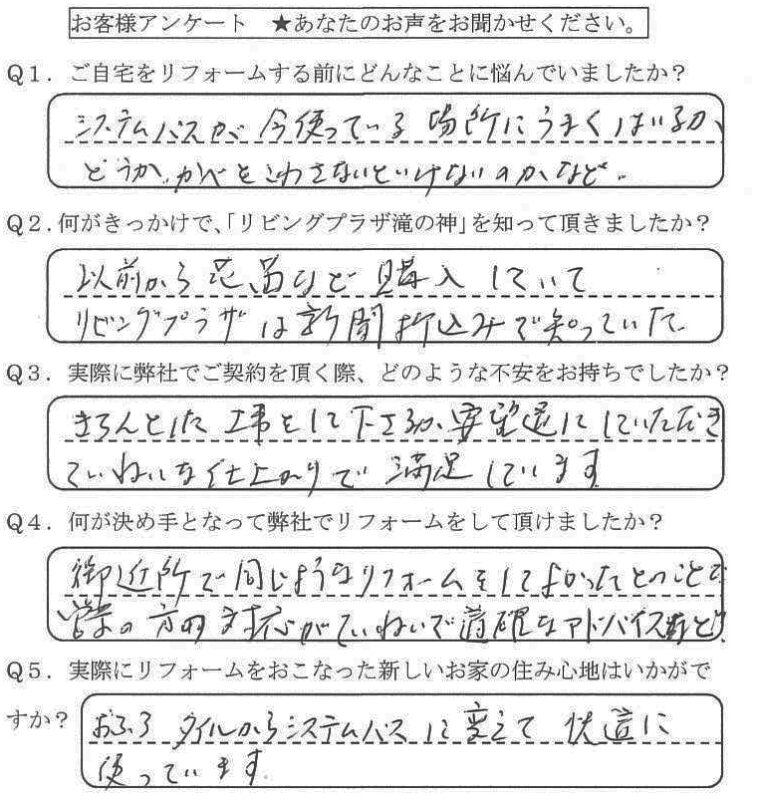 お客様アンケート ★あなたのお声をお聞かせください。
Q1. ご自宅をリフォームする前にどんなことに悩んでいましたか？
システムバスが今使っている場所にうまくはいるか、
どうか、かべをこわさないといけないのかなど。
Q2. 何がきっかけで、「リビングプラザ滝の神」を知って頂きましたか？
以前から花、苗など購入していて
リビングプラザは新聞折込みで知っていた。
Q3. 実際に弊社でご契約を頂く際、どのような不安をお持ちでしたか？
きちんとした工事をして下さるか、要望通にしていただき
ていねいな仕上がりで満足しています
Q4. 何が決め手となって弊社でリフォームをして頂けましたか？
御近所で同じようなリフォームをしてよかったとのことで
営業の方の対応がていねいで適確なアドバイス
Q5. 実際にリフォームをおこなった新しいお家の住み心地はいかがで
すか？
おふろタイルからシステムバスに変えて快適に
使っています。